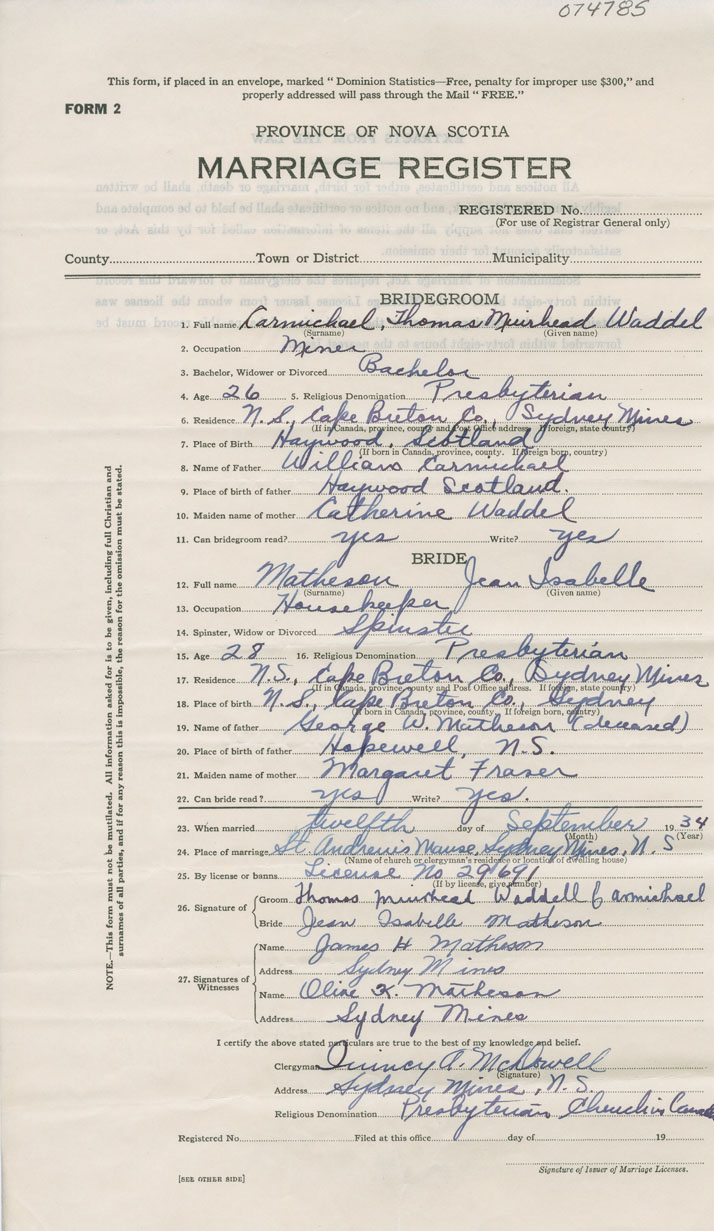 074785
This form, if placed in an envelope, marked " Dominion Statistics—Free, penalty for improper use $300," and
properly addressed will pass through the Mail " FREE."
FORM 2
PROVINCE OF NOVA SCOTIA
MARRIAGE REGISTER
REGISTERED No.
(For use of Registrar General only)
County Town or District Municipality
BRIDEGROOM
1. Full name Carmichael, Thomas Muirhead Waddel
(Surname) (Given name)
2. Occupation Miner
3. Bachelor, Widower or Divorced Bachelor
4. Age 26 5. Religious Denomination Presbyterian
6. Residence N.S., Cape Breton Co., Sydney Mines
(If in Canada, province, county and Post Office address. If foreign, state country)
7. Place of Birth Haywood, Scotland
(If born in Canada, province, county. If foreign born, country)
8. Name of Father William Carmichael
9. Place of birth of father Haywood Scotland.
10. Maiden name of mother Catherine Waddel
11. Can bridegroom read? yes Write? yes
BRIDE
12. Full name Matheson Jean Isabelle
(Surname) (Given name)
13. Occupation Housekeeper
14. Spinster, Widow or Divorced Spinster
15. Age 28 16. Religious Denomination Presbyterian
17. Residence N.S., Cape Breton Co., Sydney Mines
(If in Canada, province, county and Post Office address. If foreign, state country)
18. Place of birth N.S., Cape Breton Co., Sydney
(If born in Canada, province, county. If foreign born, country)
19. Name of father George W. Matheson (deceased)
20. Place of birth of father Hopewell, N.S.
21. Maiden name of mother Margaret Fraser
22. Can bride read? yes Write? yes.
23. When married twelfth day of September 1934
(Month) (Year)
24. Place of marriage St. Andrew's Manse, Sydney Mines, N.S
(Name of church or clergyman's residence or location of dwelling house)
25. By license or banns License No 29691
(If by license, give number)
26. Signature of
Groom Thomas Muirhead Waddell Carmichael
Bride Jean Isabelle Matheson
27. Signatures of Witnesses
Name James H Matheson
Address Sydney Mines
Name Olive K. Matheson
Address Sydney Mines
I certify the above stated particulars are true to the best of my knowledge and belief.
Clergyman Quincy A. McDowell
(Signature)
Address Sydney Mines, N.S.
Religious Denomination Presbyterian Church in Canada
Registered No. Filed at this office day of 19
Signature of Issuer of Marriage Licenses.
[SEE OTHER SIDE]
NOTE.—This form must not be mutilated. All information asked for is to be given, including full Christian and
surnames of all parties, and if for any reason this is impossible, the reason for the omission must be stated.